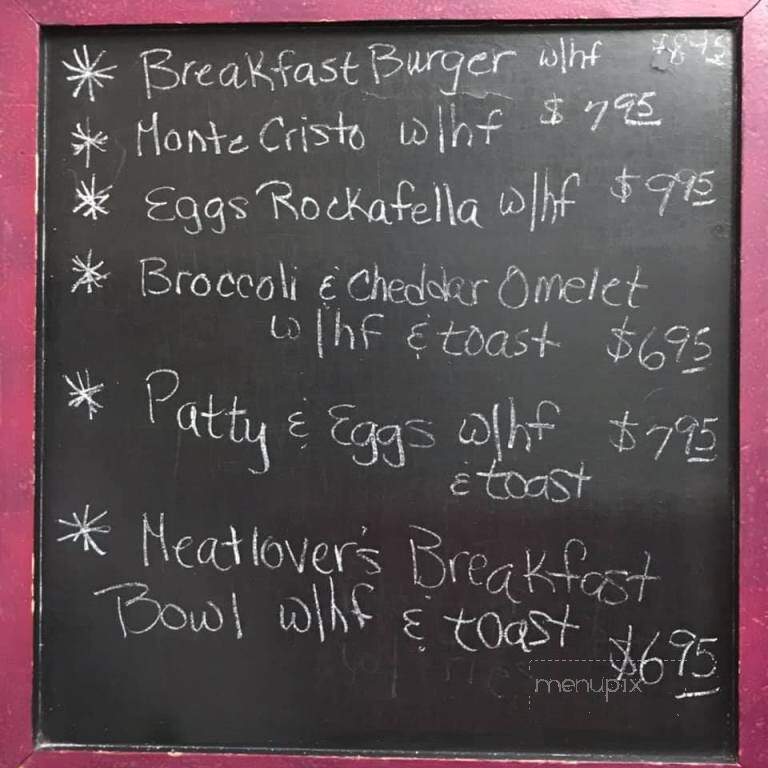 * Breakfast Burger w/hf
* Monte Cristo w/hf $7 95
* Eggs Rockafella w/hf $9 95
* Broccoli & Cheddar Omelet
w/hf & toast $6 95
* Patty & Eggs w/hf $7 95
& toast
* Meatlover's Breakfast
Bowl w/hf & toast $6 95
w/ Fries
menupix